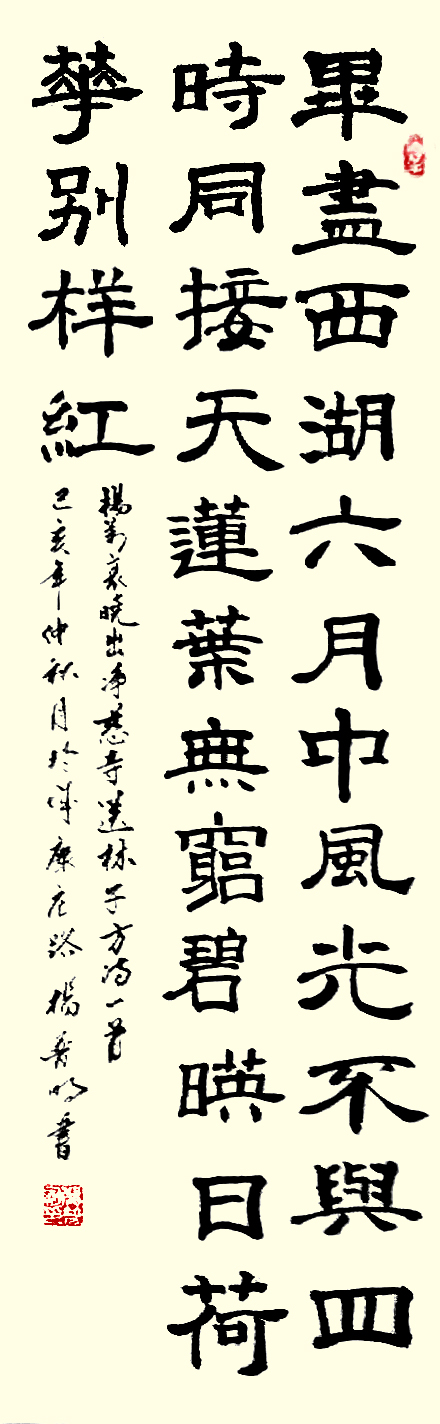 畢盡西湖六月中風光不與四
時同接天蓮葉無窮碧暎日荷
華别样紅
楊萬裏曉出净慈寺送林子方诗一首
己亥年仲秋月於康庄路楊明書